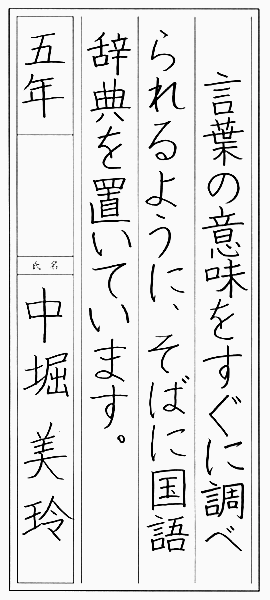 言葉の意味をすぐに調べ
られるように、そばに国語
辞典を置いています。
五年
氏名
中堀美玲